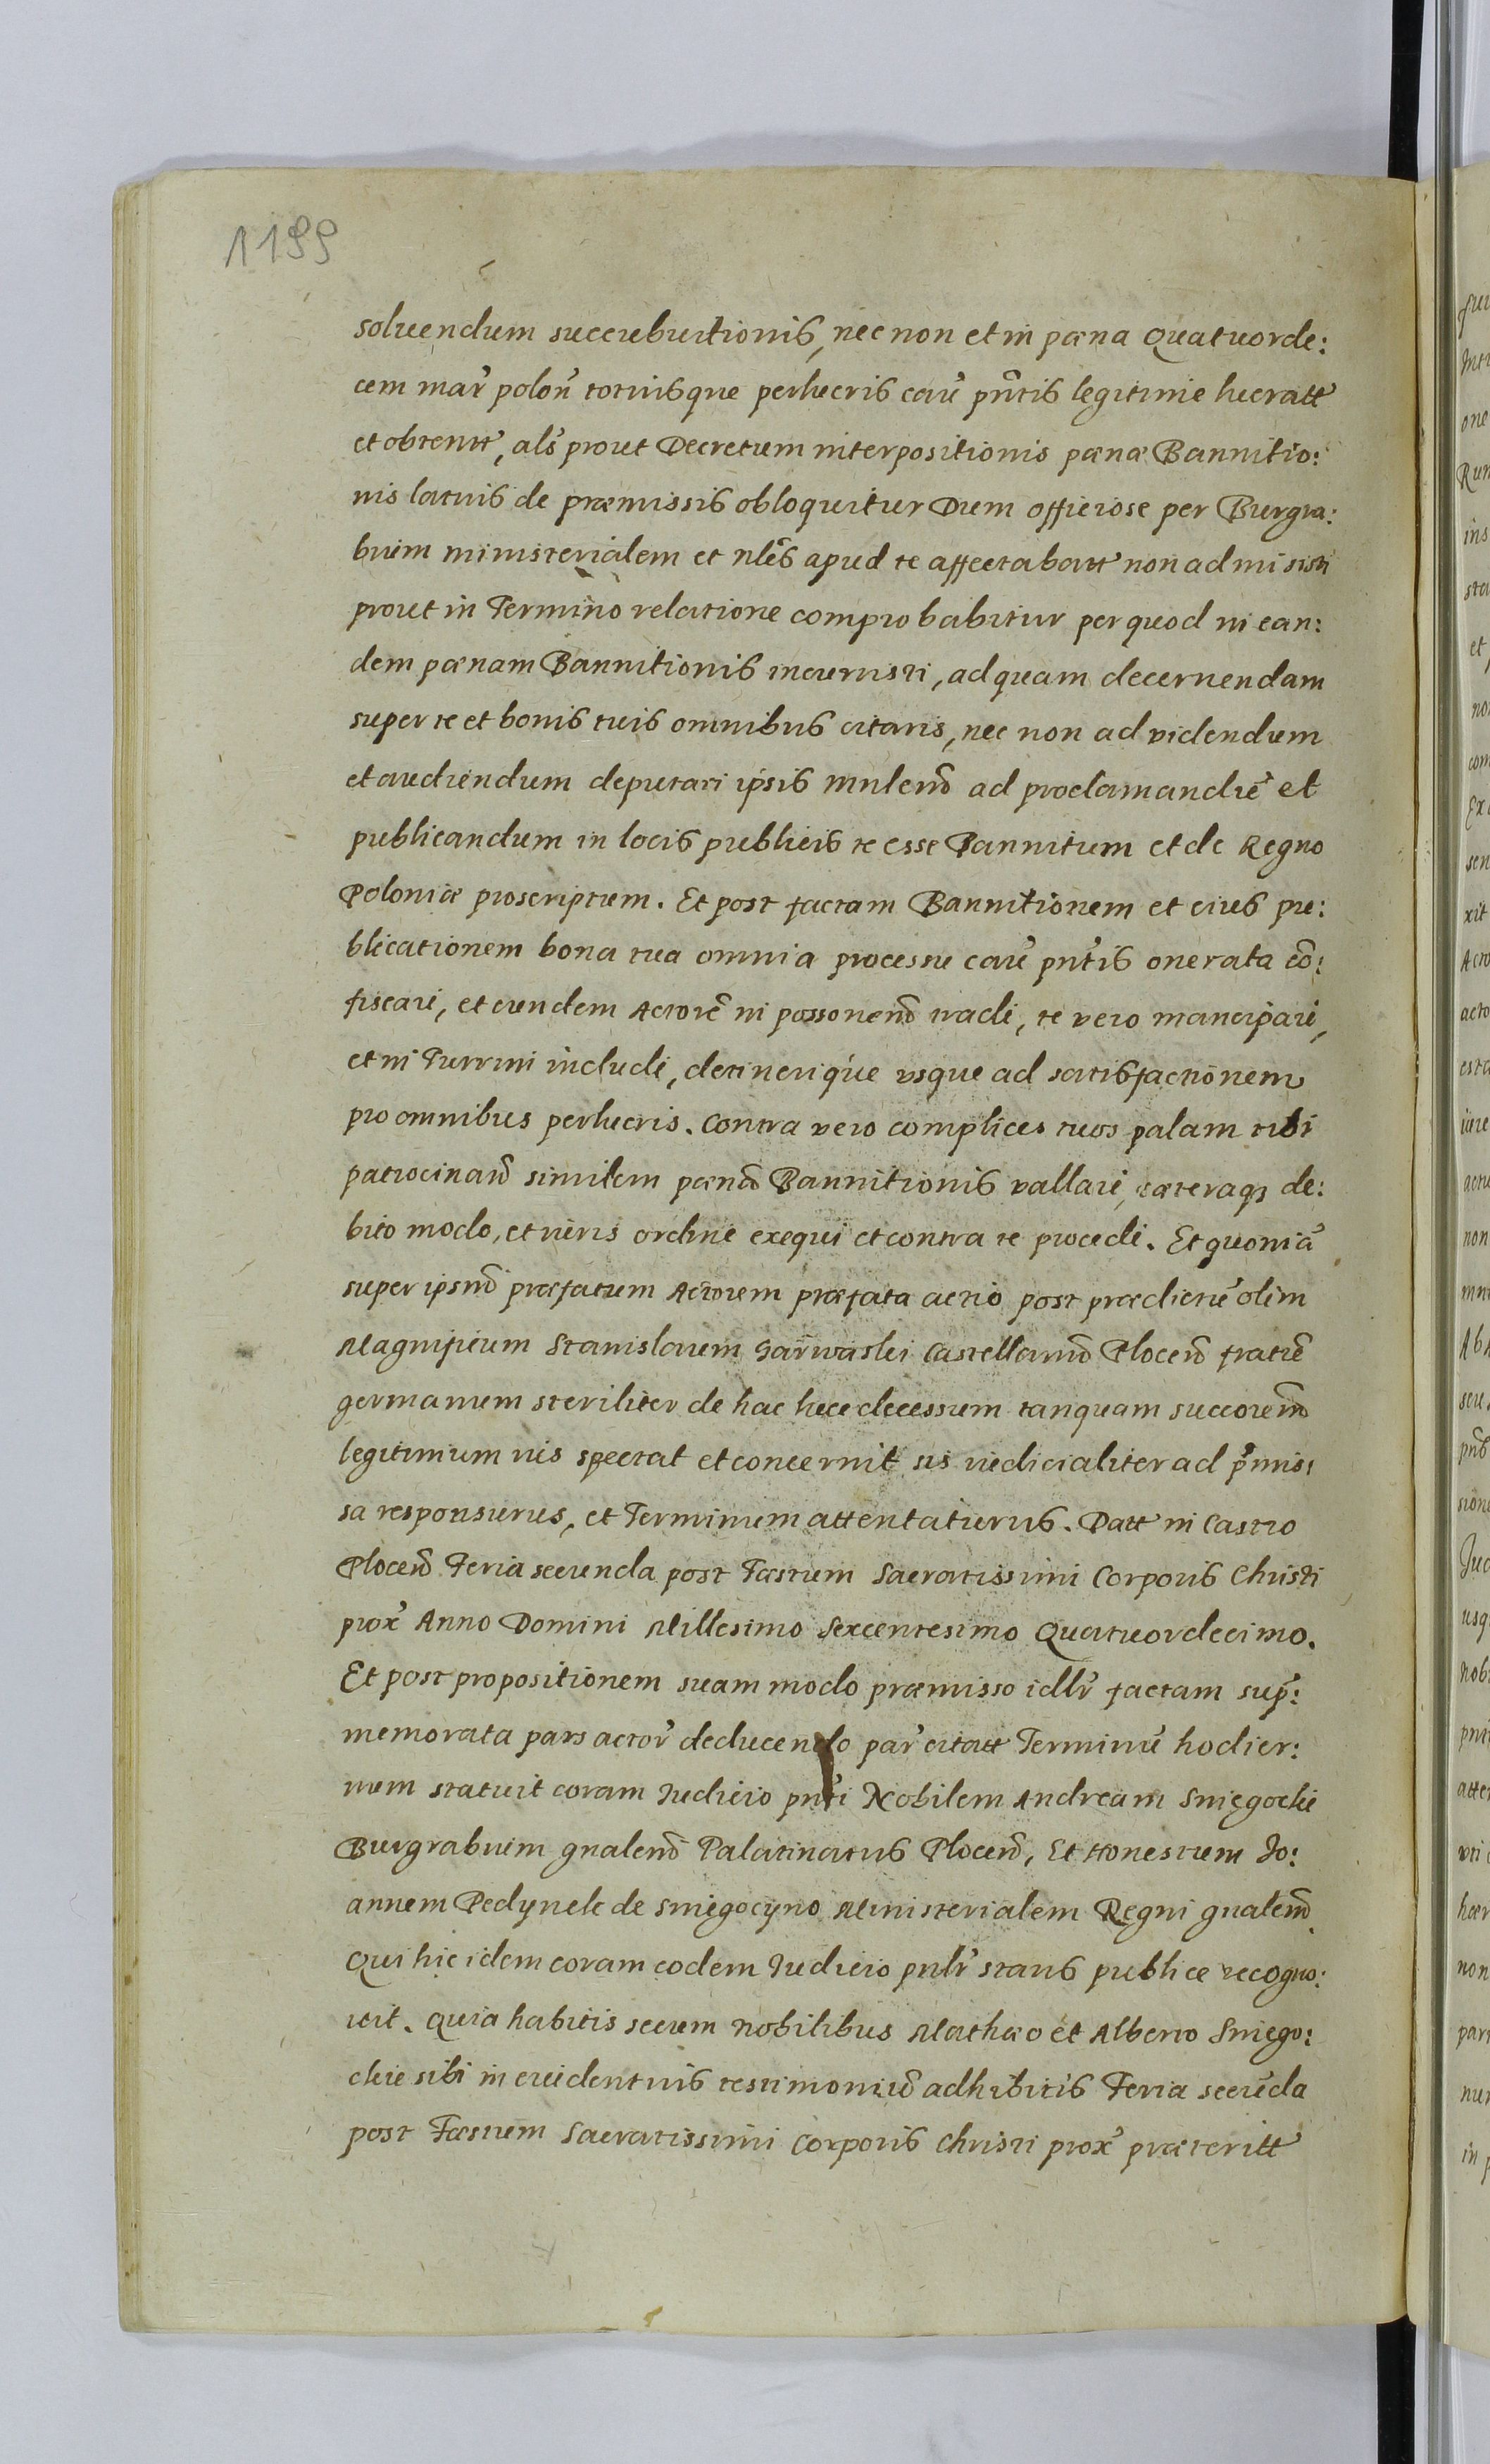 1199
soluendum succubuitionis, nec non et in pæna Quatuorde:
cem mar̃ poloñ totiusque perlucris cau͂ pñtis legitime lucratt
et obtentt, als̃ prout Decretum interpositionis pænæ Bannitio:
nis latius de præmissis obloquitur Dum officiose per Burgra:
bium ministerialem et nl̃es apud te affectabatt non admisisti
prout in Termino relatione comprobabitur per quod in ean:
dem pænam Bannitionis incurristi, ad quam decernendam
super te et bonis tuis omnibus citaris, nec non ad videndum
et audiendum deputari ipsis mnlem̃ ad proclamandu͂ et
publicandum in locis publicis te esse Bannitum et de Regno
Poloniæ proscriptum. Et post factam Bannitionem et eius pu:
blicationem bona tua omnia processu cau͂ pñtis onerata co͂:
fiscari, et eundem Actore͂ in possonem̃ tradi, te vero mancipari,
et in Turrim includi, detinerique vsque ad satisfactionem
pro omnibus perlucris. Contra vero complices tuos palam tibi
patrocinañ similem pæna͂ Bannitionis vallari, cæteraqꝫ de:
bito modo, et iuris ordine exequi et contra te procedi. Et quonia͂
super ipsum̃ præfatum Actorem præfata actio post prædictu͂ olim
Magnificum Stanislaum Garwaski Castellanum̃ Plocen̄ fratre͂
germanum steriliter de hac luce decessum tanquam succorem̃
legitimum ius spectat et concernit sis iudicialiter ad p̃mis:
sa responsurus, et Terminum attentaturus. Datt in Castro
Plocen̄ Feria secunda post Festum Sacratissimi Corporis Christi
prox̃ Anno Domini Millesimo Sexcentesimo Quatuordecimo.
Et post propositionem suam modo præmisso idlr̃ factam sup̃:
memorata pars actor̃ deducendo par̃ citatt Terminu͂ hodier:
num statuit coram Iudicio pñti Nobilem Andream Sniegocki
Burgrabium gnalem̃ Palatinatus Plocen̄, Et Honestum Jo:
annem Pedynek de Sniegocyno Ministerialem Regni gnalem̃
Qui hic idem coram eodem Iudicio pnlr̃ stans publice recogno:
uit. Quia habitis secum Nobilibus Mathæo et Alberto Sniego:
ckie sibi in euidentius testimonium̃ adhibitis Feria secu͂da
post Festum Sacratissimi Corporis Christi prox̃ præteritt